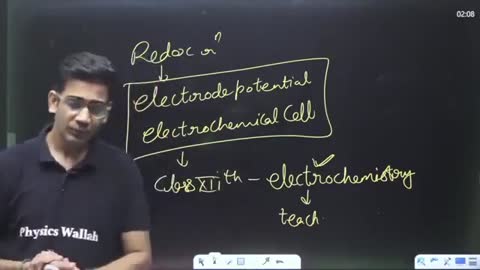 02:08
Redox rxⁿ
electrode potential
electrochemical cell
class XIIth - electrochemistry
teach
Physics Wallah